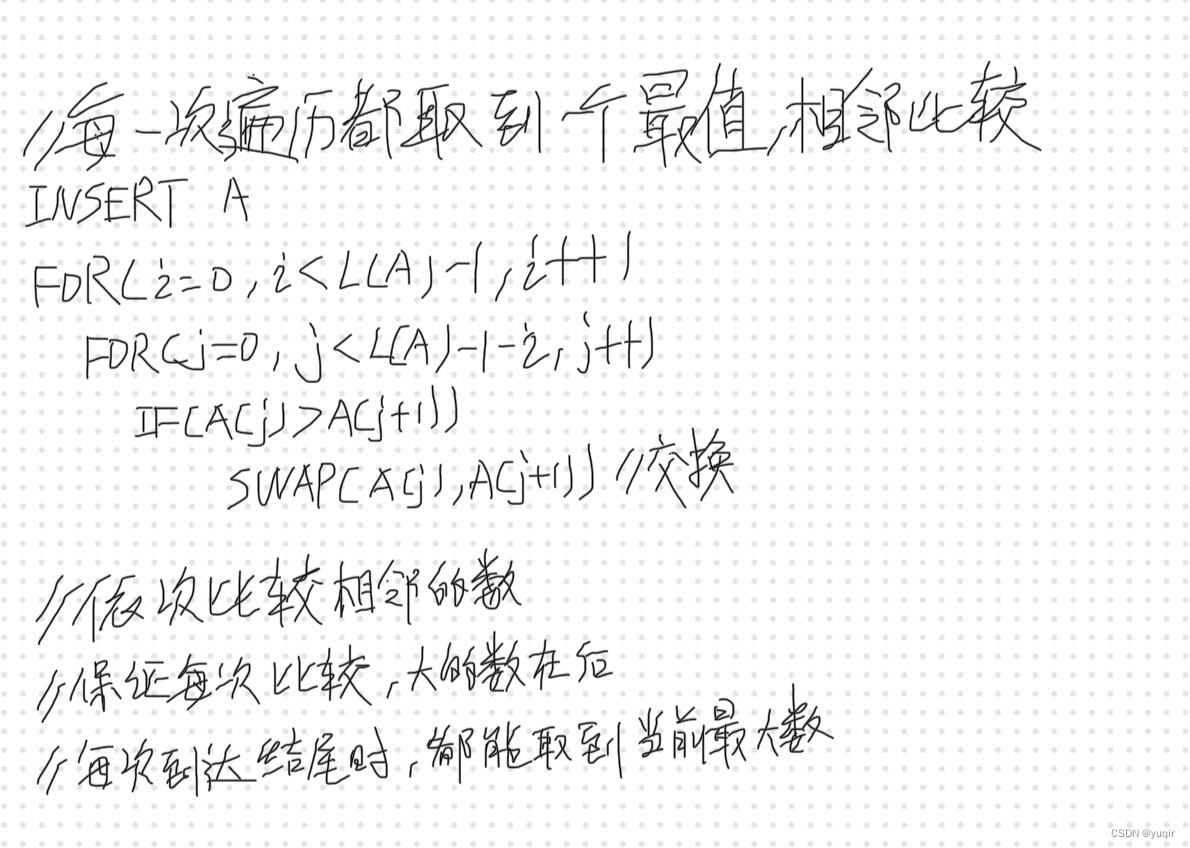 //每一次遍历都取到一个最值,相邻比较
INSERT A
FOR(i=0,i<L(A)-1,i++)
FOR(j=0,j<L(A)-1-i,j++)
IF(A(j)>A(j+1))
SWAP(A(j),A(j+1)) //交换
//依次比较相邻的数
//保证每次比较,大的数在后
//每次到达结尾时,都能取到当前最大数
CSDN @yuqir